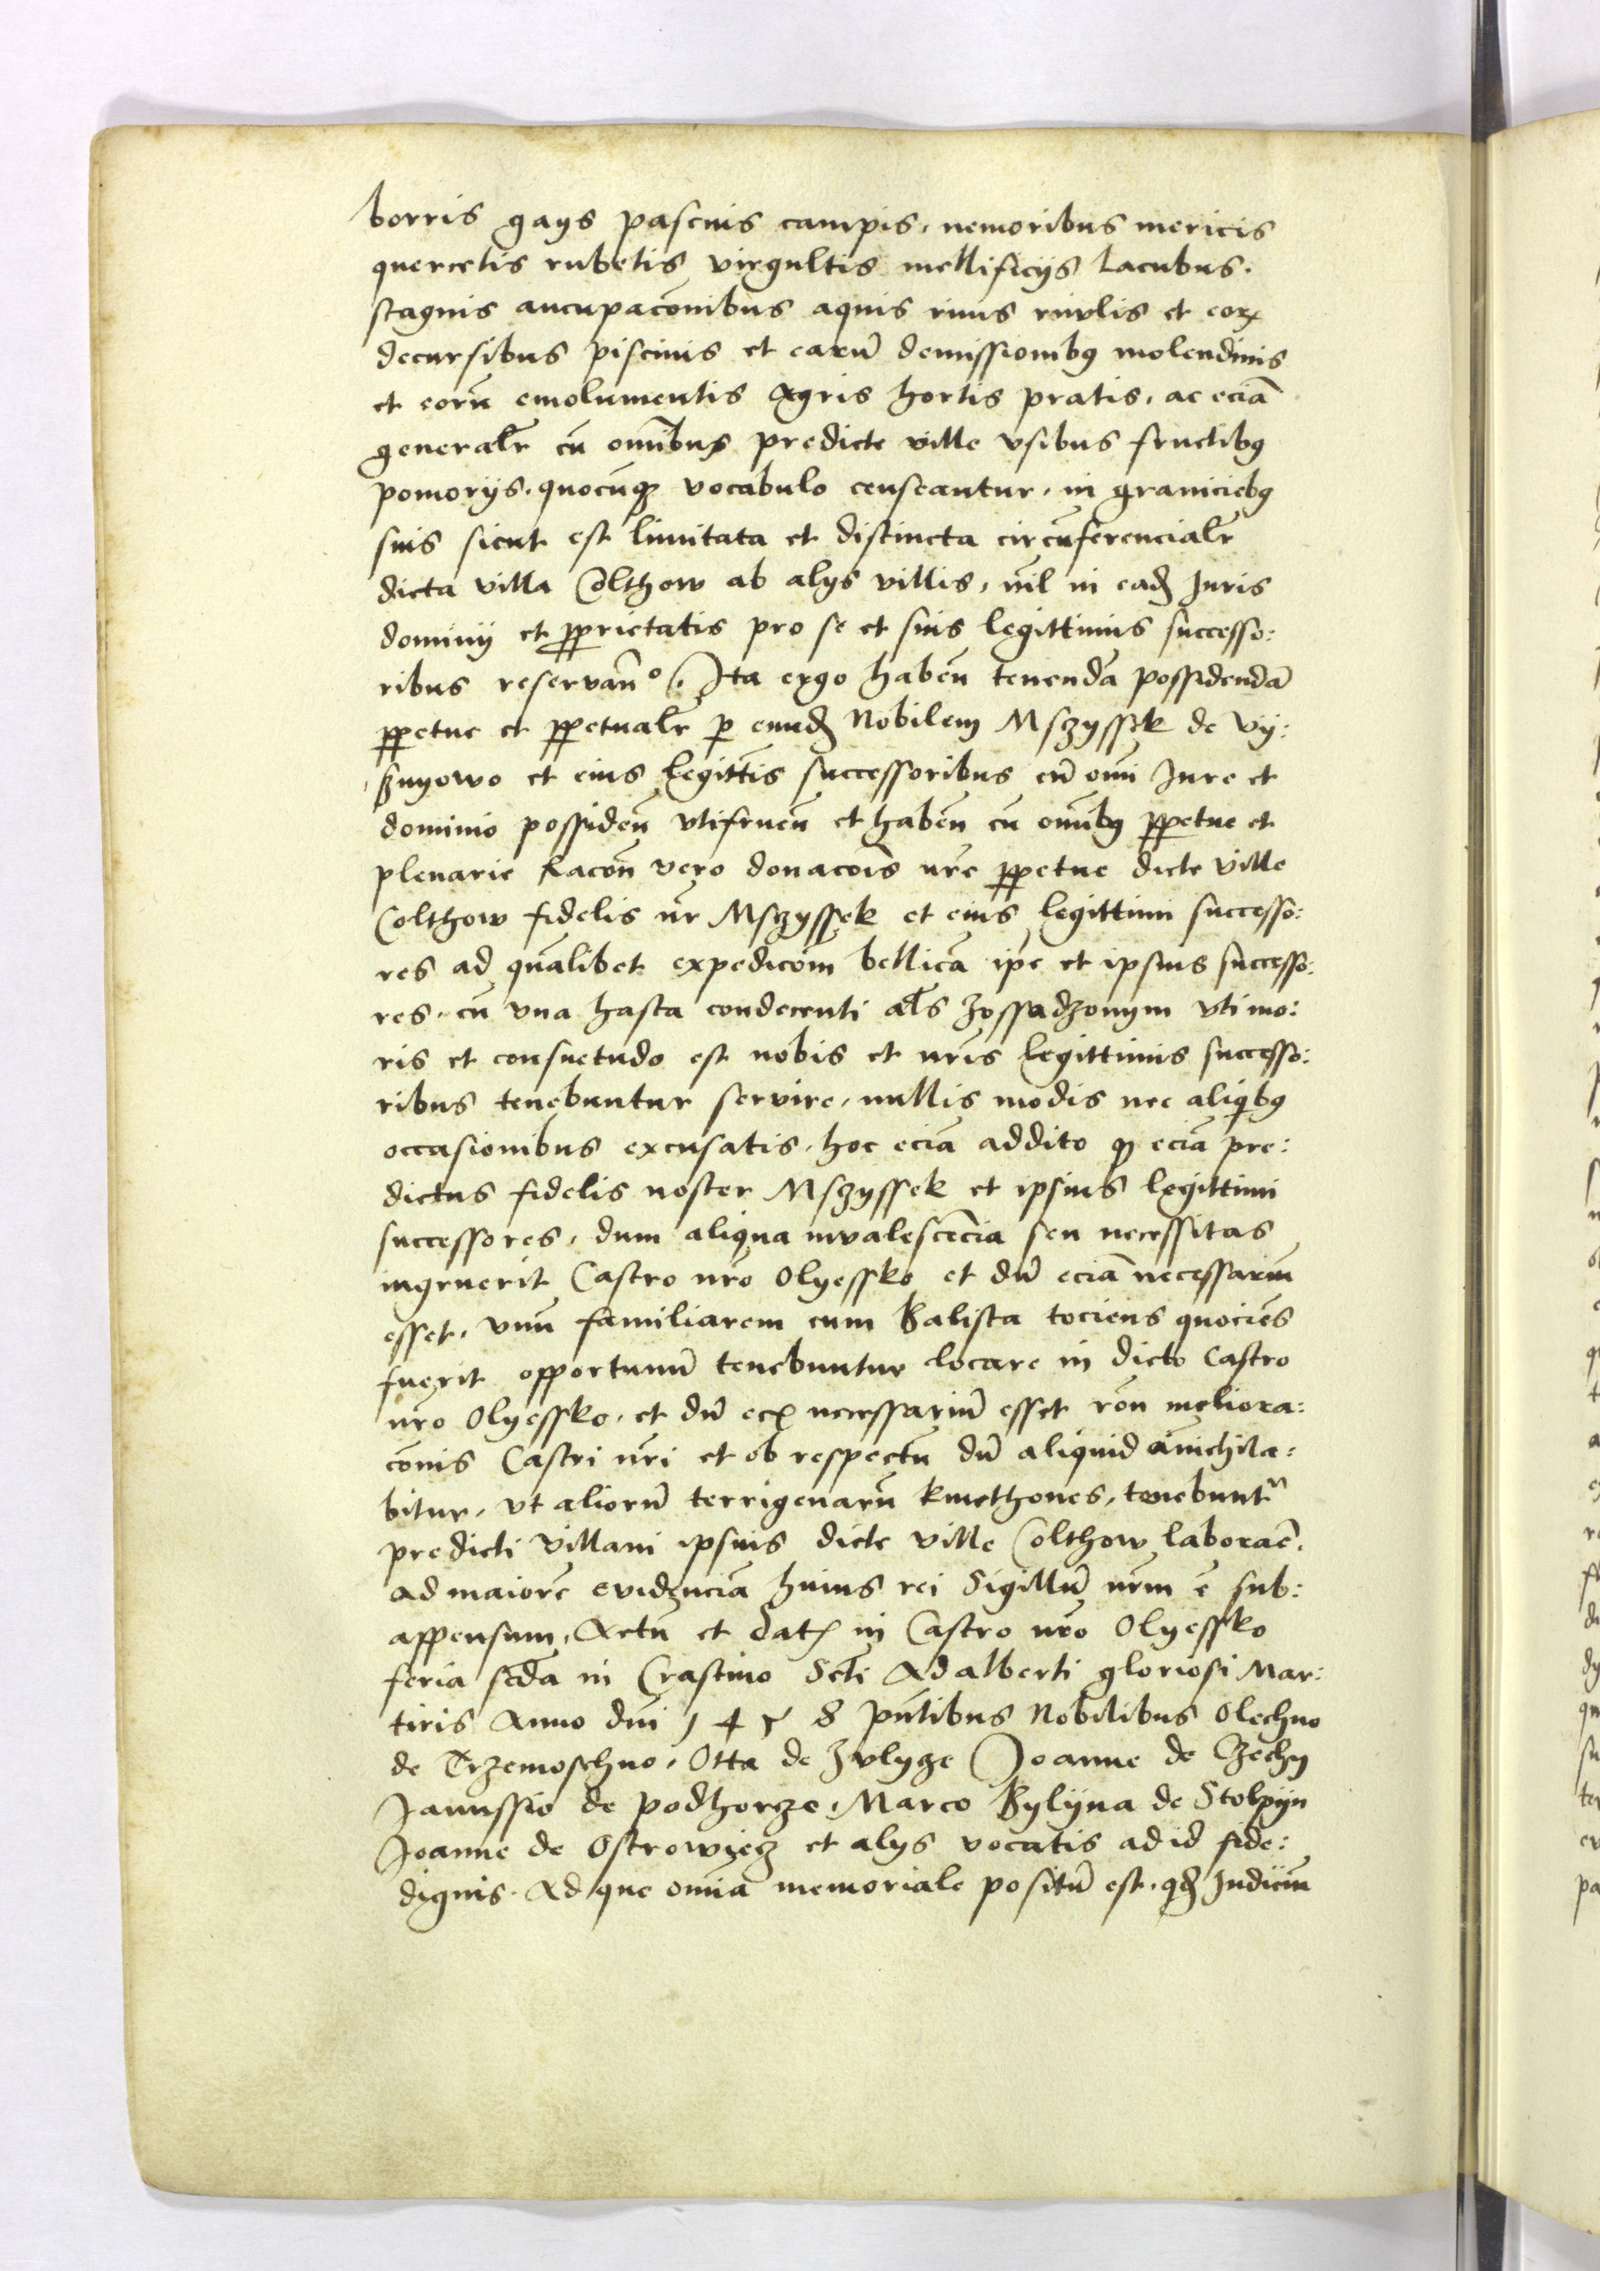 borris gays pascuis campis, nemoribus mericis
quercetis rubetis virgultis mellificijs Lacubus.
stagnis aucupac̄onibus aquis riuis riuulis et eoꝝ
decursibus piscinis et earū demissionibꝯ molendinis
et eorū emolumentis Agris hortis pratis, ac eciā
generalr̄ cū om̄ibus predicte ville vsibus fructibꝯ
pomorijs, quocūqꝫ vocabulo censeantur, in graniciebꝯ
suis sicut est limitata et distincta circūferencialr̄
dicta villa Colthow ab alys villis, nīl in eadꝫ Juris
dominij et ꝓprietatis pro se et suis legittimis successo:
ribus reservan̄º. Ita ergo haben̄ tenendā possidendā
ꝑpetue et ꝑpetualr̄ ꝑ eundꝫ Nobilem Msczyssek de vy:
sznyowo et eius legittīs successoribus cū om̄i Jure et
dominio possiden̄ vtifruen̄ et haben̄ cū om̄ibꝯ ꝑpetue et
plenarie Racōn vero donacōis nr̄e ꝑpetue dicte ville
Colthow fidelis nr̄ Msczyssek et eius legittimi successo:
res ad quālibet expedicōm bellicā ip̄e et ipsius successo:
res, cū vna hasta condecenti al̄s zossadzonym vti mo:
ris et consuetudo est nobis et nr̄is legittimis successo:
ribus tenebuntur servire, nullis modis nec aliqibꝯ
occasionibus excusatis, hoc eciā addito qꝫ eciā pre:
dictus fidelis noster Msczyssek et ipsius legittimi
successores, dum aliqua invalescēcia seu necessitas
ingruerit Castro nr̄o Olyessko et dū eciā necessariū
esset, vnū familiarem cum Balista tociens quociēs
fuerit opportunū tenebuntur locare in dicto Castro
nr̄o Olyessko, et dū ecꝫ necessariū esset rōn meliora:
cōnis Castri nr̄i et ob respectū dū aliquid anichila:
bitur, vt aliorū terrigenarū kmethones, tenebuntᵘ
predicti villani ipsius dicte ville Colthow laborar̄e.
ad maiorē evidenciā huius rei Sigillū nr̄m ē sub:
appensum, Actū et Datꝫ in Castro nr̄o Olyessko
feria sc̄da in Crastino Sc̄ti Adalberti gloriosi Mar:
tiris Anno dn̄i 1458 pn̄tibus Nobilibus Olechno
de Trzemoschno, Otta de Zulycze Joanne de Czechy
Janussio de podhorcze, Marco Bylyna de Stolpyn
Joanne de Ostrowyecz et alys vocatis ad id fide:
dignis. Ad que om̄ia memoriale positū est, qdꝫ Judiciū